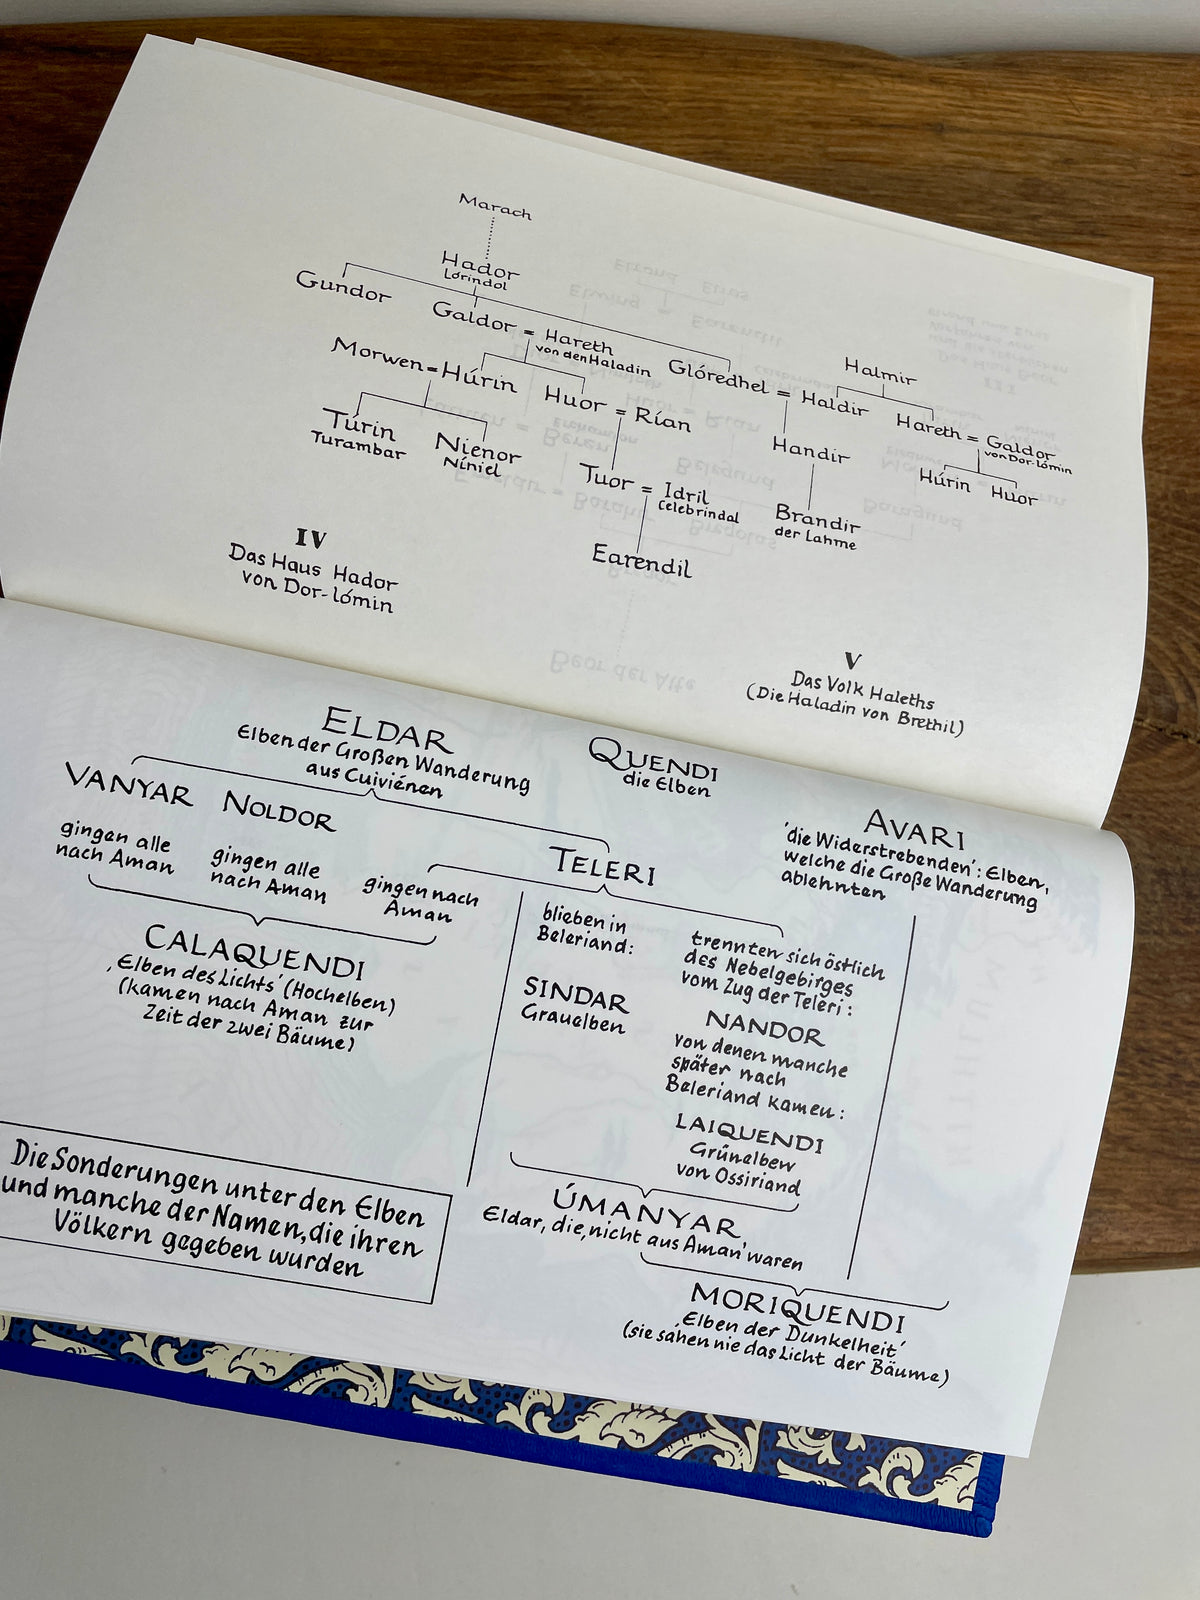 Marach
Hador
Lórindol
Gundor
Galdor = Hareth
von den Haladin
Glóredhel = Haldir
Halmir
Morwen = Húrin
Huor = Rían
Hareth = Galdor
von Dor-lómin
Túrin
Turambar
Nienor
Níniel
Handir
Húrin Huor
Tuor = Idril
Celebrindal
Brandir
der Lahme
Earendil
IV
Das Haus Hador
von Dor-lómin
V
Das Volk Haleths
(Die Haladin von Brethil)
Beor der Alte
ELDAR
Elben der Großen Wanderung
aus Cuiviénen
QUENDI
die Elben
VANYAR
gingen alle
nach Aman
NOLDOR
gingen alle
nach Aman
TELERI
gingen nach
Aman
AVARI
'die Widerstrebenden': Elben,
welche die Große Wanderung
ablehnten
CALAQUENDI
‚Elben des Lichts' (Hochelben)
(kamen nach Aman zur
Zeit der zwei Bäume)
blieben in
Beleriand:
SINDAR
Grauelben
trennten sich östlich
des Nebelgebirges
vom Zug der Teleri:
NANDOR
von denen manche
später nach
Beleriand kamen:
LAIQUENDI
Grünelben
von Ossiriand
ÚMANYAR
Eldar, die ‚nicht aus Aman' waren
MORIQUENDI
Elben der Dunkelheit'
(sie sahen nie das Licht der Bäume)
Die Sonderungen unter den Elben
und manche der Namen, die ihren
Völkern gegeben wurden